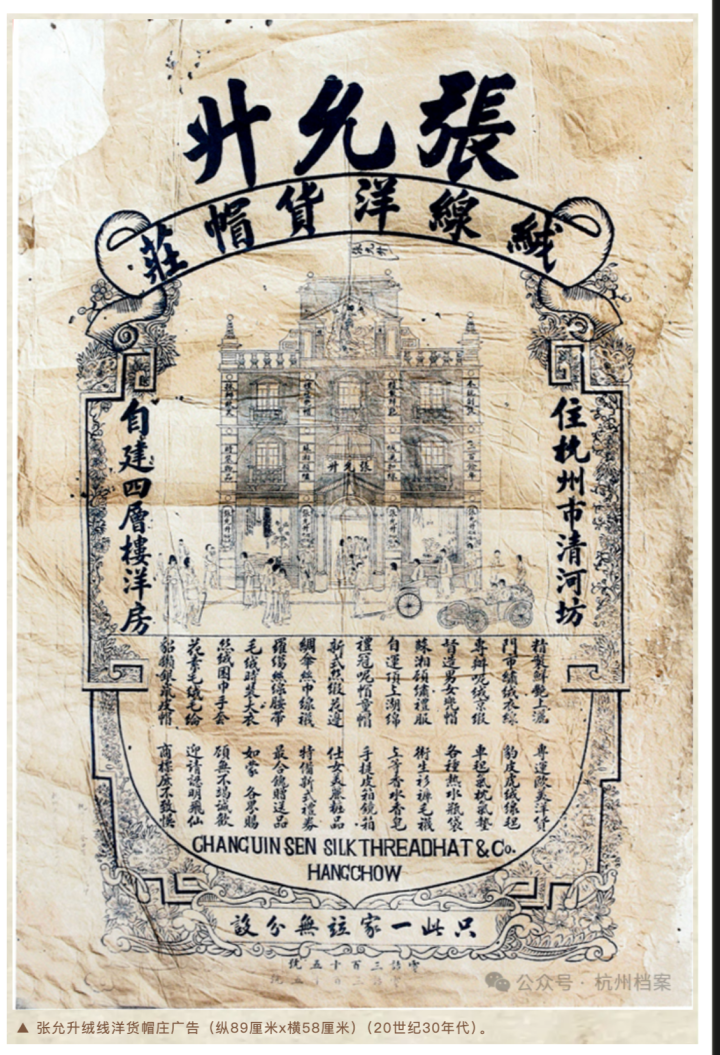 張允升
絨線洋貨帽莊
張允升
張允升
住杭州市清河坊
自建四層樓洋房
門市繡絨衣線
專辦呢絨京緞
督造男女兜帽
蘇湘顧繡禮服
自運頂上湖綿
禮冠呢帽童帽
新式絲緞花邊
綢傘絲巾線襪
羅縐絲線腰帶
毛絨時裝大衣
絲絨圍巾手套
花素毛絨毛綸
貂獺銀鼠皮帽
專運歐美洋貨
豹皮虎絨線毯
車毯氣枕氣墊
各種熱水瓶袋
衛生衫褲毛襪
上等香水香皂
手提皮箱鏡箱
仕女美麗粧品
特備新式禮券
最合餽贈送品
如蒙 各界賜
顧無不竭誠歡
迎請認明飛仙
商標庶不致誤
CHANGUIN SEN SILK THREAD HAT & Co.
HANGCHOW
只此一家並無分設
電話三百十五號
公众号 · 杭州档案
▲ 张允升绒线洋货帽庄广告（纵89厘米x横58厘米）（20世纪30年代）。